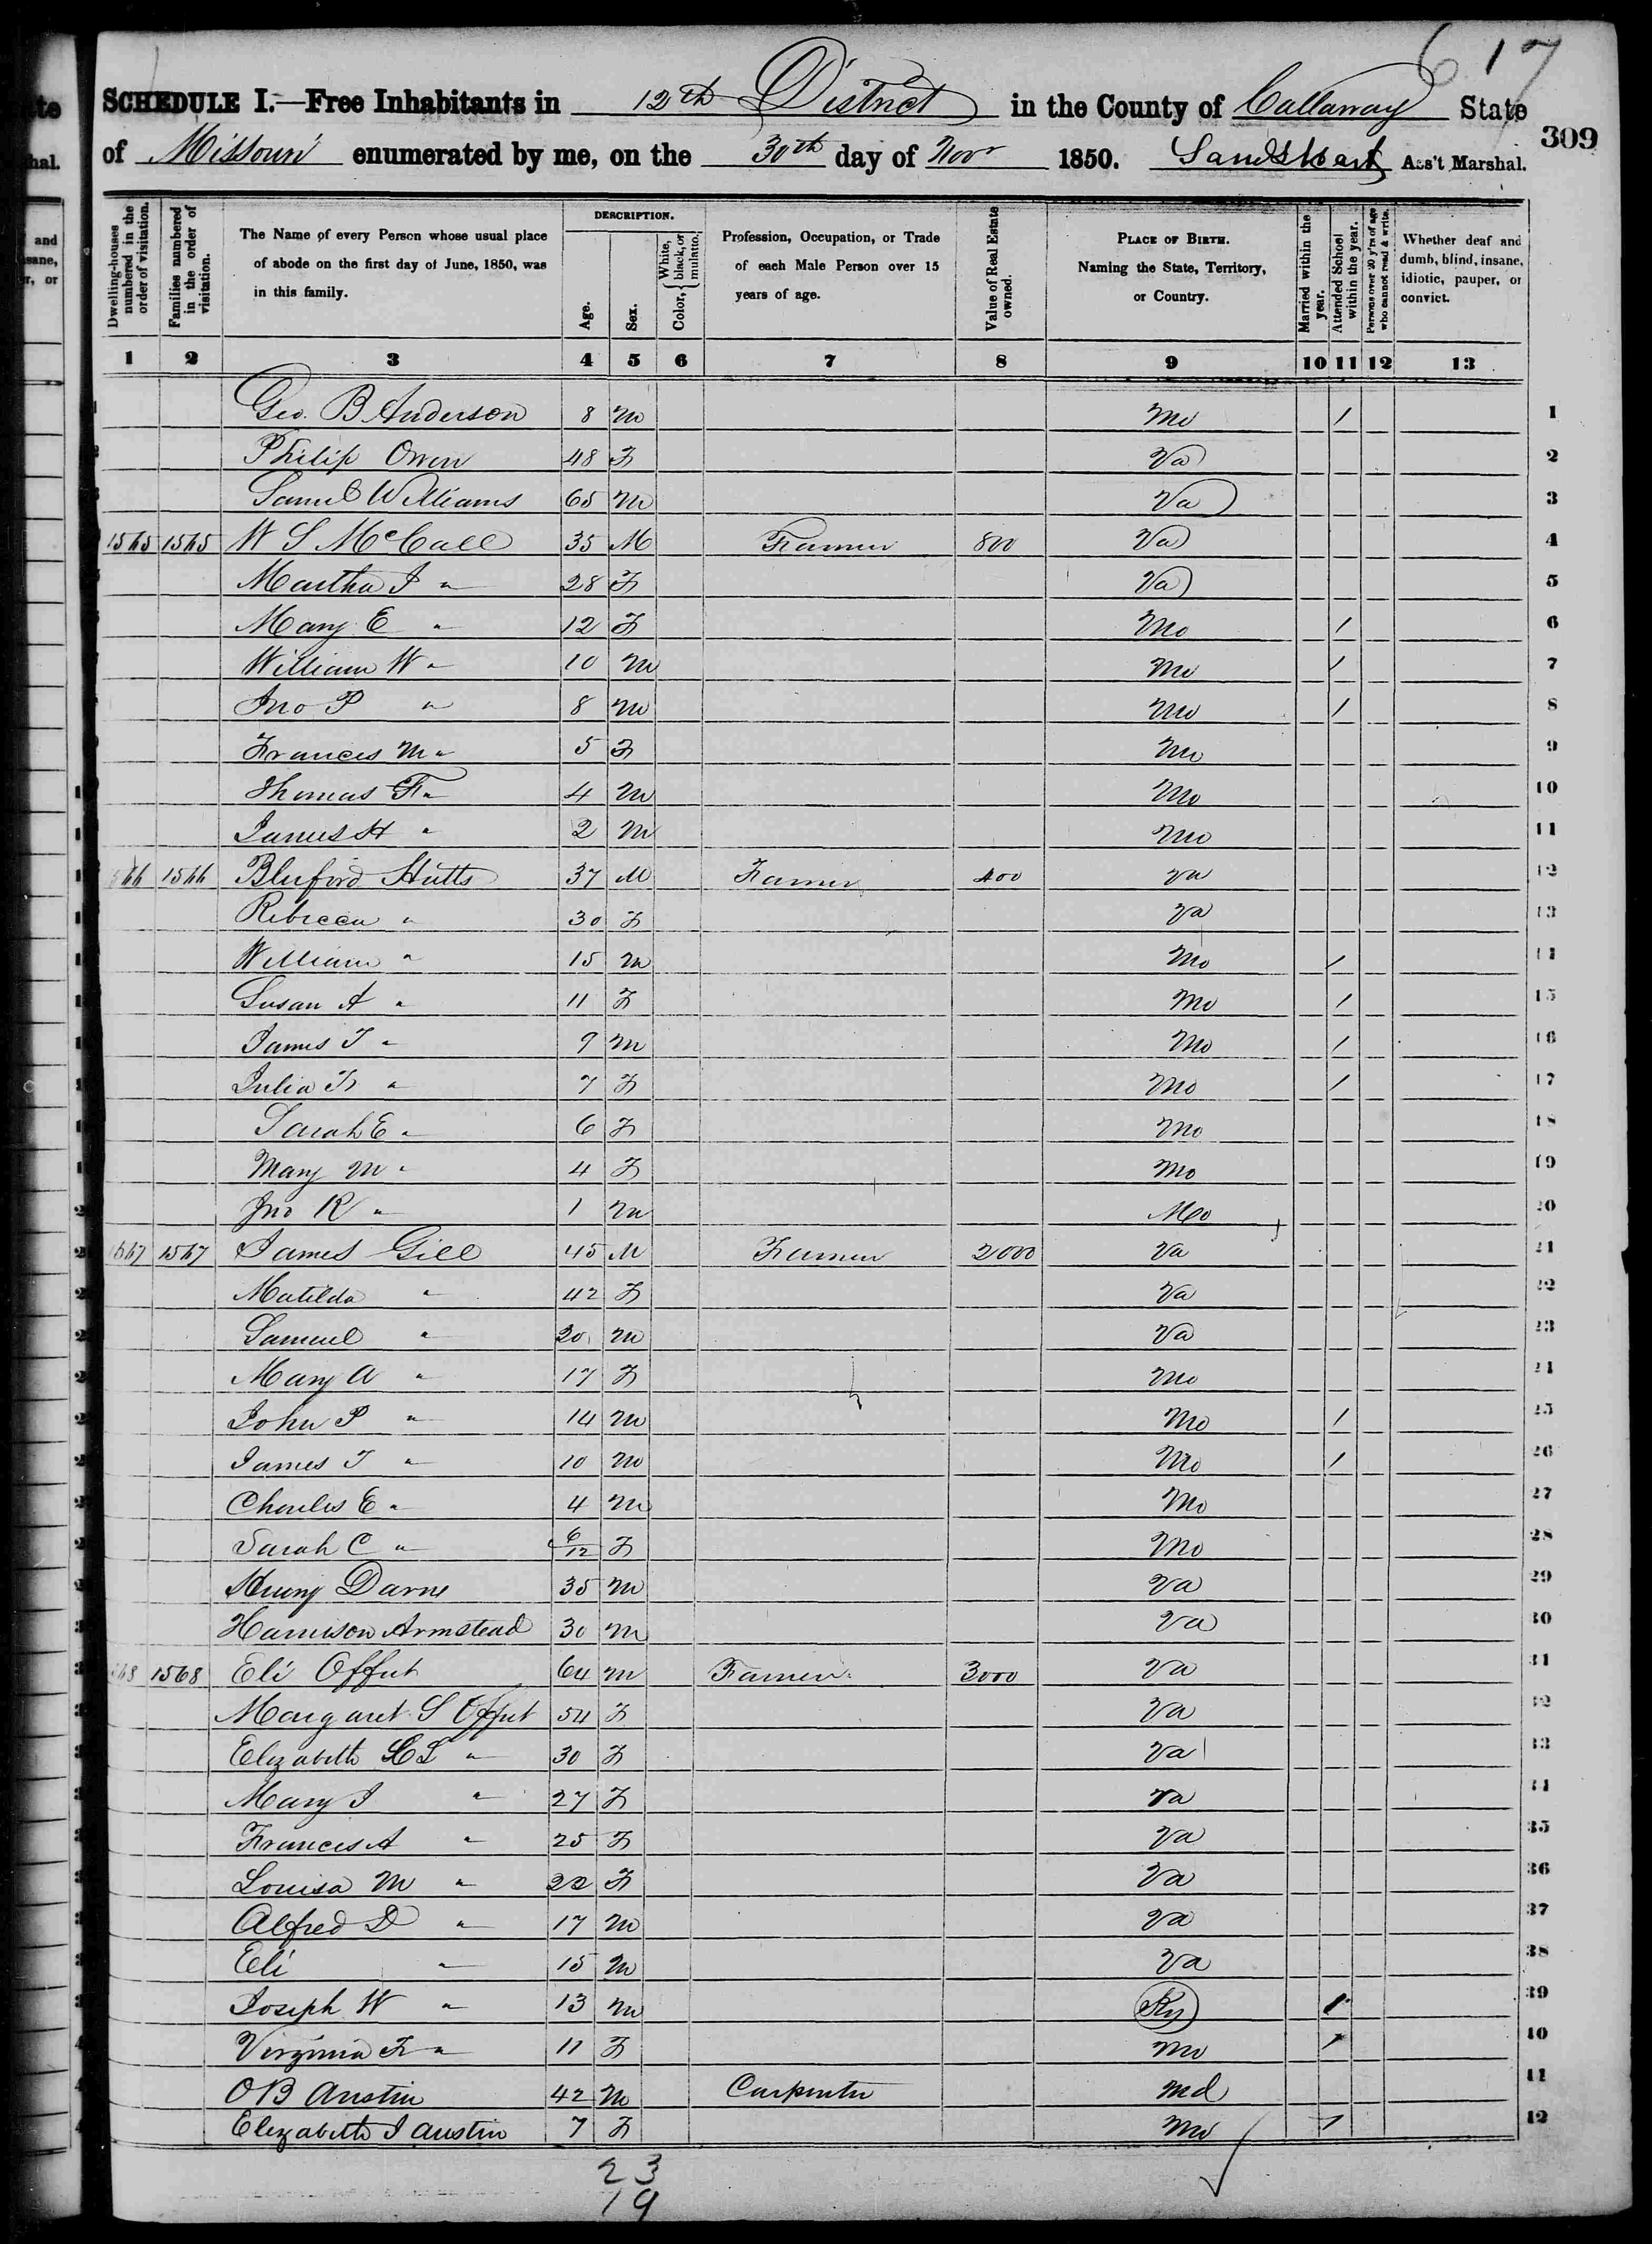 617
SCHEDULE I.—Free Inhabitants in 12th District in the County of Callaway State
of Missouri enumerated by me, on the 30th day of Novr 1850. Ass't Marshal.
309
Dwelling-houses numbered in the order of visitation.
Families numbered in the order of visitation.
The Name of every Person whose usual place of abode on the first day of June, 1850, was in this family.
DESCRIPTION.
Age.
Sex.
Color, { White, black, or mulatto.
Profession, Occupation, or Trade of each Male Person over 15 years of age.
Value of Real Estate owned.
PLACE OF BIRTH. Naming the State, Territory, or Country.
Married within the year.
Attended School within the year.
Persons over 20 y'rs of age who cannot read & write.
Whether deaf and dumb, blind, insane, idiotic, pauper, or convict.
1 2 3 4 5 6 7 8 9 10 11 12 13
Geo. B Anderson 8 m Mo / 1
Philip Owen 48 F Va 2
Saml Williams 65 m Va 3
1565 1565 W S McCall 35 M Farmer 800 Va 4
Martha J " 28 F Va 5
Mary E " 12 F Mo / 6
William W " 10 m Mo / 7
Jno P " 8 m Mo / 8
Frances M " 5 F Mo 9
Thomas F " 4 m Mo 10
James H " 2 m Mo 11
1566 1566 Bluford Hutts 37 M Farmer 400 Va 12
Rebecca " 30 F Va 13
William " 15 m Mo / 14
Susan A " 11 F Mo / 15
James T " 9 m Mo / 16
Julia F " 7 F Mo / 17
Sarah E " 6 F Mo 18
Mary M " 4 F Mo 19
Jno R " 1 m Mo 20
1567 1567 James Gill 45 M Farmer 2000 Va 21
Matilda " 42 F Va 22
Samuel " 20 m Va 23
Mary A " 17 F Mo 24
John P " 14 m Mo / 25
James T " 10 m Mo / 26
Charles E " 4 m Mo 27
Sarah C " 6/12 F Mo 28
Henry Darne 35 m Va 29
Harrison Armstead 30 m Va 30
568 1568 Eli Offut 64 m Farmer 3000 Va 31
Margaret S Offut 54 F Va 32
Elizabeth " 30 F Va 33
Mary J " 27 F Va 34
Frances A " 25 F Va 35
Louisa M " 22 F Va 36
Alfred D " 17 m Va 37
Eli " 15 m Va 38
Joseph W " 13 m Ky / 39
Virginia F " 11 F Mo / 40
O B Austin 42 m Carpenter Md 41
Elizabeth J Austin 7 F Mo / 42
23
19